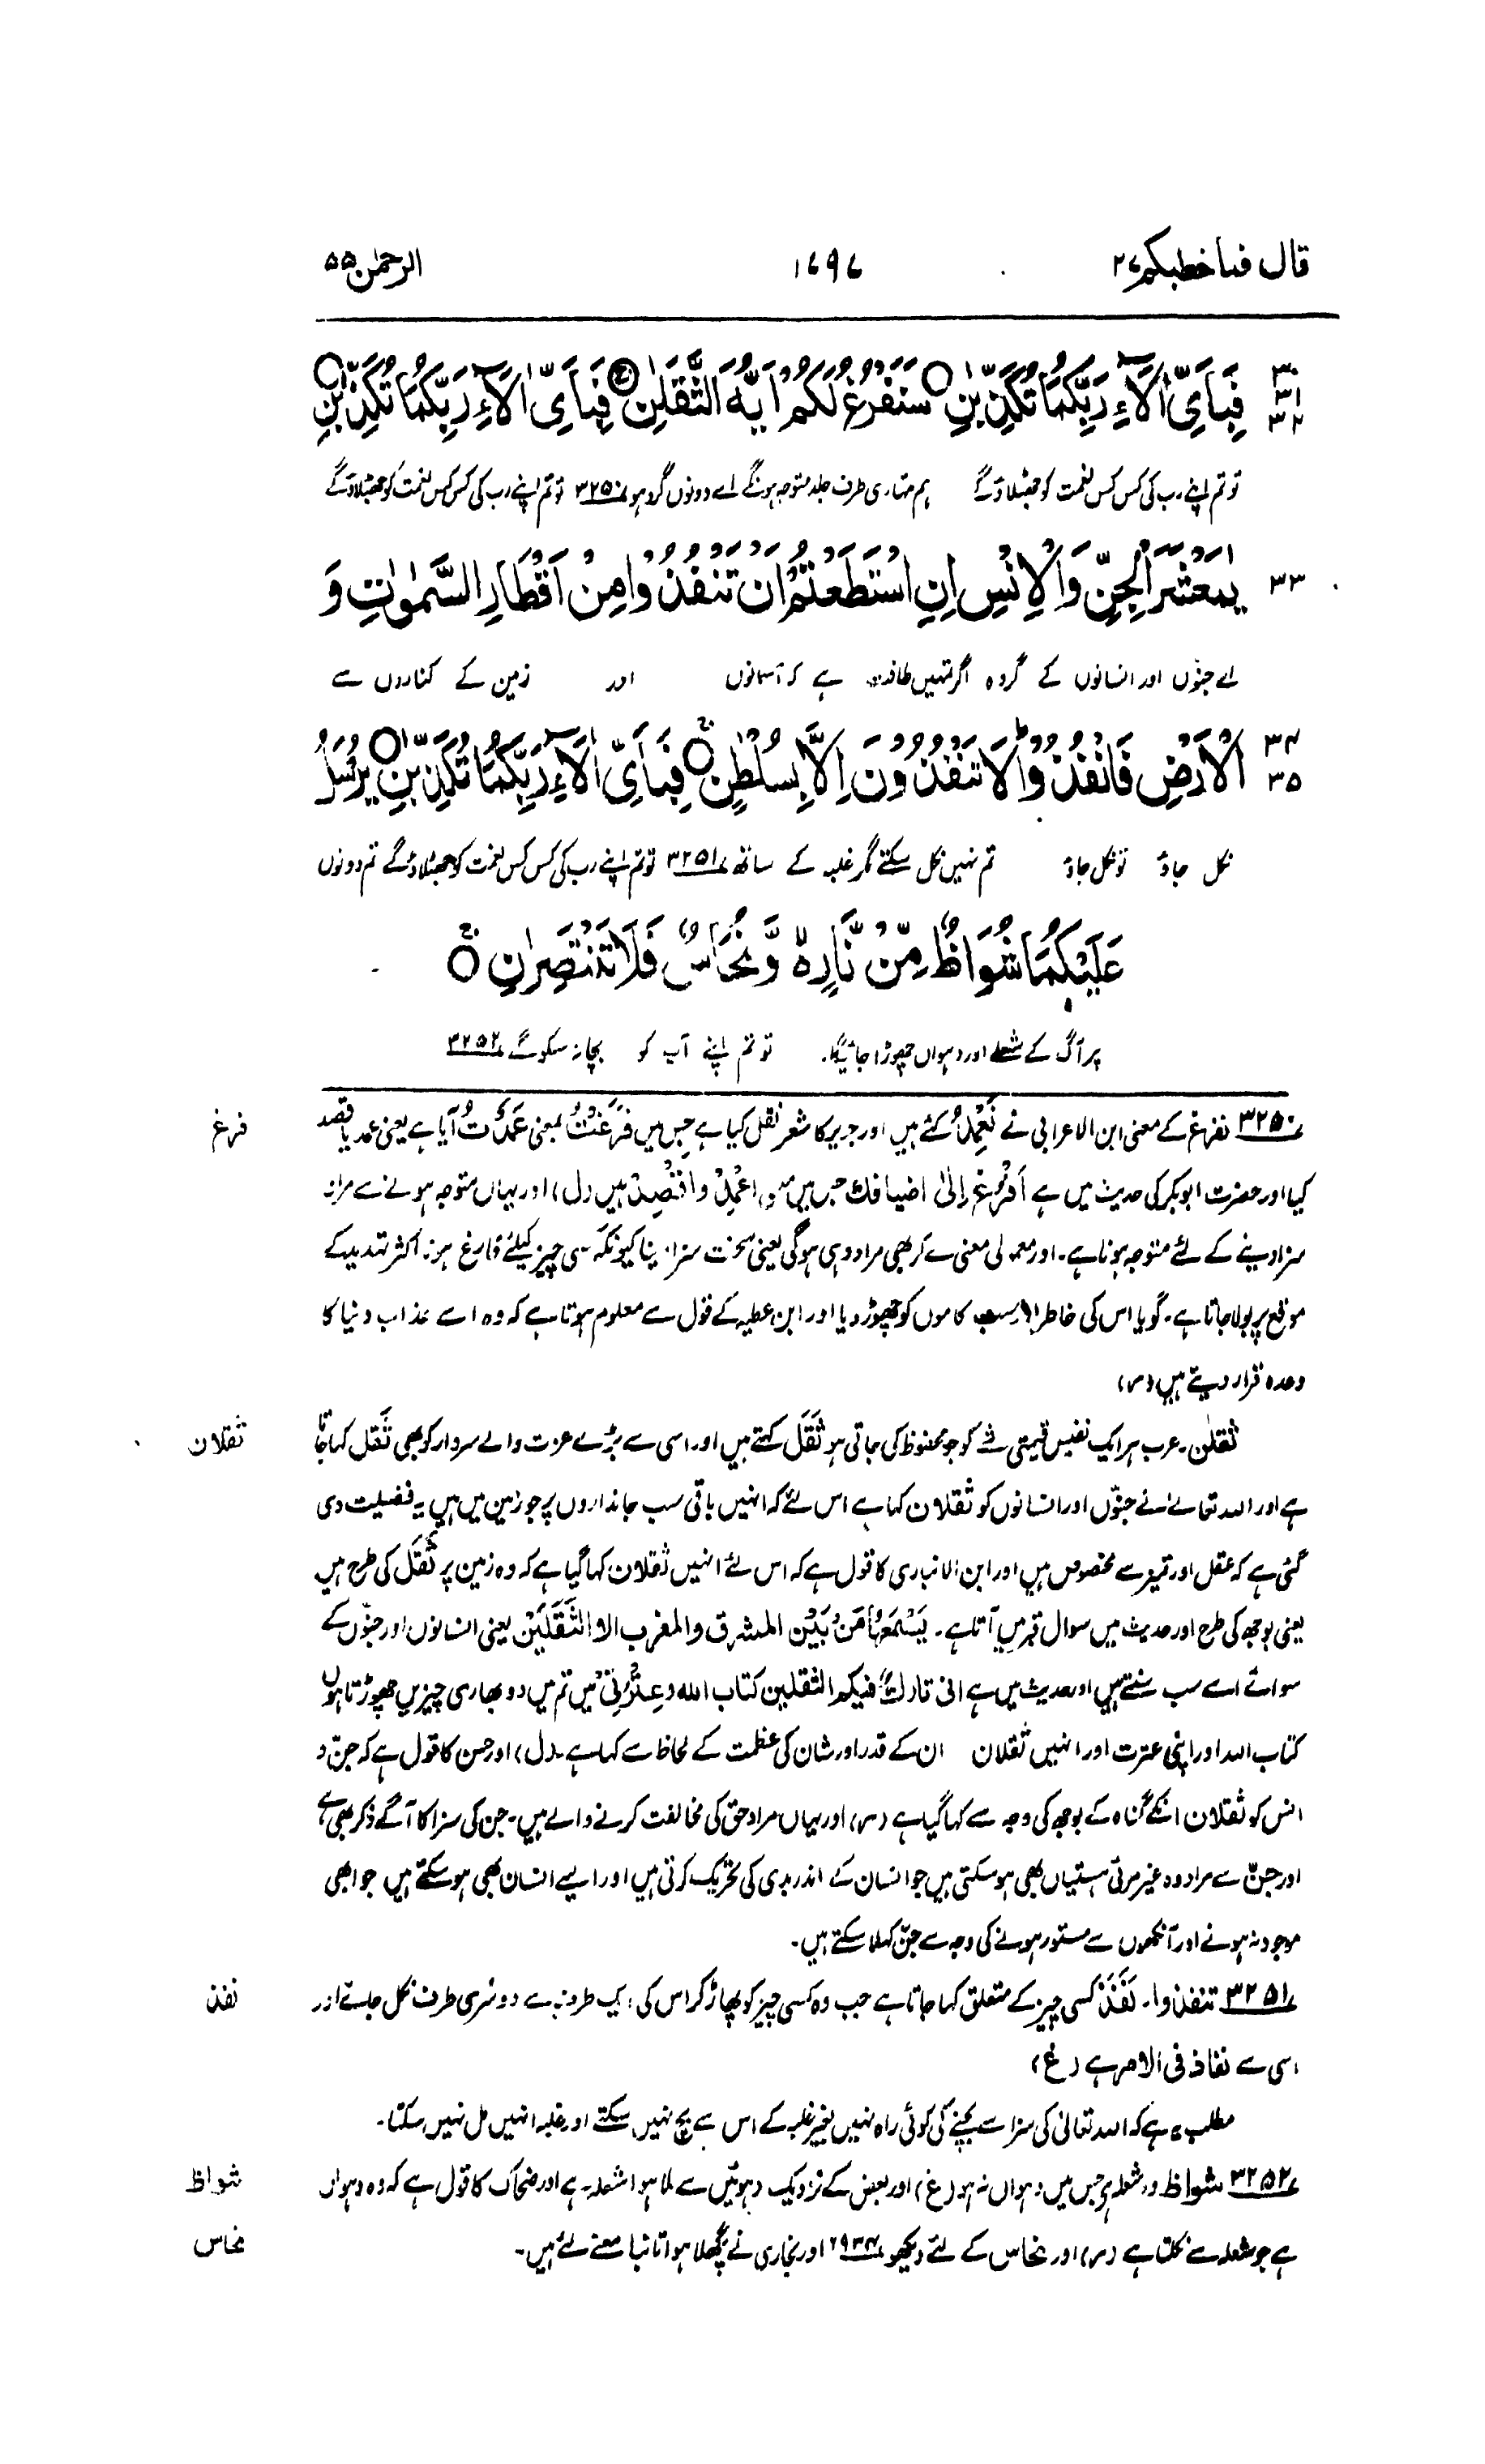 قال فماخطبکم ۲۷ ۱۷۹۷ الرحمٰن ۵۵
۳۰ ۳۱ ۳۲ فَبِاَیِّ اٰلَآءِ رَبِّکُمَا تُکَذِّبٰنِ ○ سَنَفْرُغُ لَکُمْ اَیُّهَ الثَّقَلٰنِ ○ فَبِاَیِّ اٰلَآءِ رَبِّکُمَا تُکَذِّبٰنِ ○
تو تم اپنے رب کی کس کس نعمت کو جھٹلاؤگے ہم تمہاری طرف جلد متوجہ ہونگے اے دونوں گروہو ۳۲۵۰ تو تم اپنے رب کی کس کس نعمت کو جھٹلاؤگے
۳۳ یٰمَعْشَرَ الْجِنِّ وَالْاِنْسِ اِنِ اسْتَطَعْتُمْ اَنْ تَنْفُذُوْا مِنْ اَقْطَارِ السَّمٰوٰتِ وَ
اے جنّوں اور انسانوں کے گروہ اگر تمہیں طاقت ہے کہ آسمانوں اور زمین کے کناروں سے
۳۴ ۳۵ الْاَرْضِ فَانْفُذُوْا ؕ لَا تَنْفُذُوْنَ اِلَّا بِسُلْطٰنٍ ○ فَبِاَیِّ اٰلَآءِ رَبِّکُمَا تُکَذِّبٰنِ ○ یُرْسَلُ
نکل جاؤ تو نکل جاؤ تم نہیں نکل سکتے مگر غلبہ کے ساتھ ۳۲۵۱ تو تم اپنے رب کی کس کس نعمت کو جھٹلاؤگے تم دونوں
عَلَیْکُمَا شُوَاظٌ مِّنْ نَّارٍ ۥۙ وَّ نُحَاسٌ فَلَا تَنْتَصِرٰنِ ○
پر آگ کے شعلے اور دہواں چھوڑا جائیگا۔ تو تم اپنے آپ کو بچا نہ سکوگے ۳۲۵۲
۳۲۵۰ نفرغ کے معنی ابن الاعرابی نے نَعْمِدُ کئے ہیں اور جریر کا شعر نقل کیا ہے جس میں فَرَغْتُ بمعنی عَمَدْتُ آیا ہے یعنی عمد یا قصد
فرغ
کیا اور حضرت ابوبکر کی حدیث میں ہے اُفْرُغْ اِلٰی اضیافک جس میں معنی اعْمِدْ واقْصِدْ ہیں (ل) اور یہاں متوجہ ہونے سے مراد
سزا دینے کے لئے متوجہ ہونا ہے۔ اور معمولی معنی لے کر بھی مراد وہی ہوگی یعنی سخت سزا دینا کیونکہ کسی چیز کیلئے فارغ ہونا اکثر تہدید کے
موقع پر بولا جاتا ہے۔ گویا اس کی خاطر اور سب کاموں کو چھوڑ دیا اور ابن عطیہ کے قول سے معلوم ہوتا ہے کہ وہ اسے عذاب دنیا کا
وعدہ قرار دیتے ہیں (ر)
ثقلٰن۔ عرب ہر ایک نفیس قیمتی شے کو جو محفوظ کی جاتی ہو ثَقَل کہتے ہیں اور اسی سے بڑے عزت والے سردار کو بھی ثَقَل کہا جاتا
ثقلان
ہے اور اللہ تعالےٰ نے جنّوں اور انسانوں کو ثقلان کہا ہے اس لئے کہ انہیں باقی سب جانداروں پر جو زمین میں ہیں یہ فضیلت دی
گئی ہے کہ عقل اور تمیز سے مخصوص ہیں اور ابن الانباری کا قول ہے کہ اس لئے انہیں ثقلان کہا گیا ہے کہ وہ زمین پر ثقل کی طرح ہیں
یعنی بوجھ کی طرح اور حدیث میں سوال قبر میں آتا ہے۔ یَسْمَعُهَا مَنْ بَیْن المشرق والمغرب الا الثَّقَلَیْن یعنی انسانوں اور جنّوں کے
سوائے اسے سب سنتے ہیں اور حدیث میں ہے انی تارکٌ فیکم الثقلین کتاب الله وعِتْرتی میں تم میں دو بھاری چیزیں چھوڑتا ہوں
کتاب اللہ اور اپنی عترت اور انہیں ثقلان ان کے قدر اور شان کی عظمت کے لحاظ سے کہا ہے (ل) اور حسن کا قول ہے کہ جنّ و
انس کو ثقلان انکے گناہ کے بوجھ کی وجہ سے کہا گیا ہے (ر) اور یہاں مراد حق کی مخالفت کرنے والے ہیں۔ جن کی سزا کا آگے ذکر بھی ہے
اور جنّ سے مراد وہ غیر مرئی ہستیاں بھی ہوسکتی ہیں جو انسان کے اندر بدی کی تحریک کرتی ہیں اور ایسے انسان بھی ہوسکتے ہیں جو ابھی
موجود نہ ہونے اور آنکھوں سے مستور ہونے کی وجہ سے جنّ کہلا سکتے ہیں۔
۳۲۵۱ تنفذوا۔ نَفَذَ کسی چیز کے متعلق کہا جاتا ہے جب وہ کسی چیز کو پھاڑ کر اس کی ایک طرف سے دوسری طرف نکل جائے اور
نفذ
اسی سے نفاذ فی الامر ہے (غ)
مطلب یہ ہے کہ اللہ تعالیٰ کی سزا سے بچنے کی کوئی راہ نہیں بغیر غلبہ کے اس سے بچ نہیں سکتے اور غلبہ انہیں مل نہیں سکتا۔
۳۲۵۲ شواظ وہ شعلہ ہے جس میں دہواں نہ ہو (غ) اور بعض کے نزدیک دہوئیں سے ملا ہوا شعلہ ہے اور ضحاک کا قول ہے کہ وہ دہواں
شواظ
ہے جو شعلہ سے نکلتا ہے (ر) اور نحاس کے لئے دیکھو ۲۹۳۴ اور بخاری نے پگھلا ہوا تانبا معنے لئے ہیں۔
نحاس